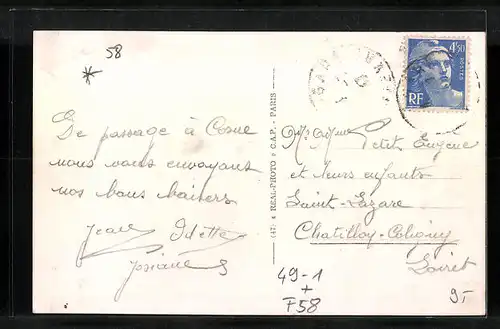 58
*
De passage à Cosne
nous vous envoyons
nos bons baisers
Jean Odette
Josiane
(47) REAL-PHOTO C.A.P. - PARIS
4f50
POSTES
RF
Petit Eugène
et leurs enfants
Saint-Lazare
Chatillon-Coligny
Loiret
49-1
+
F58
9,-